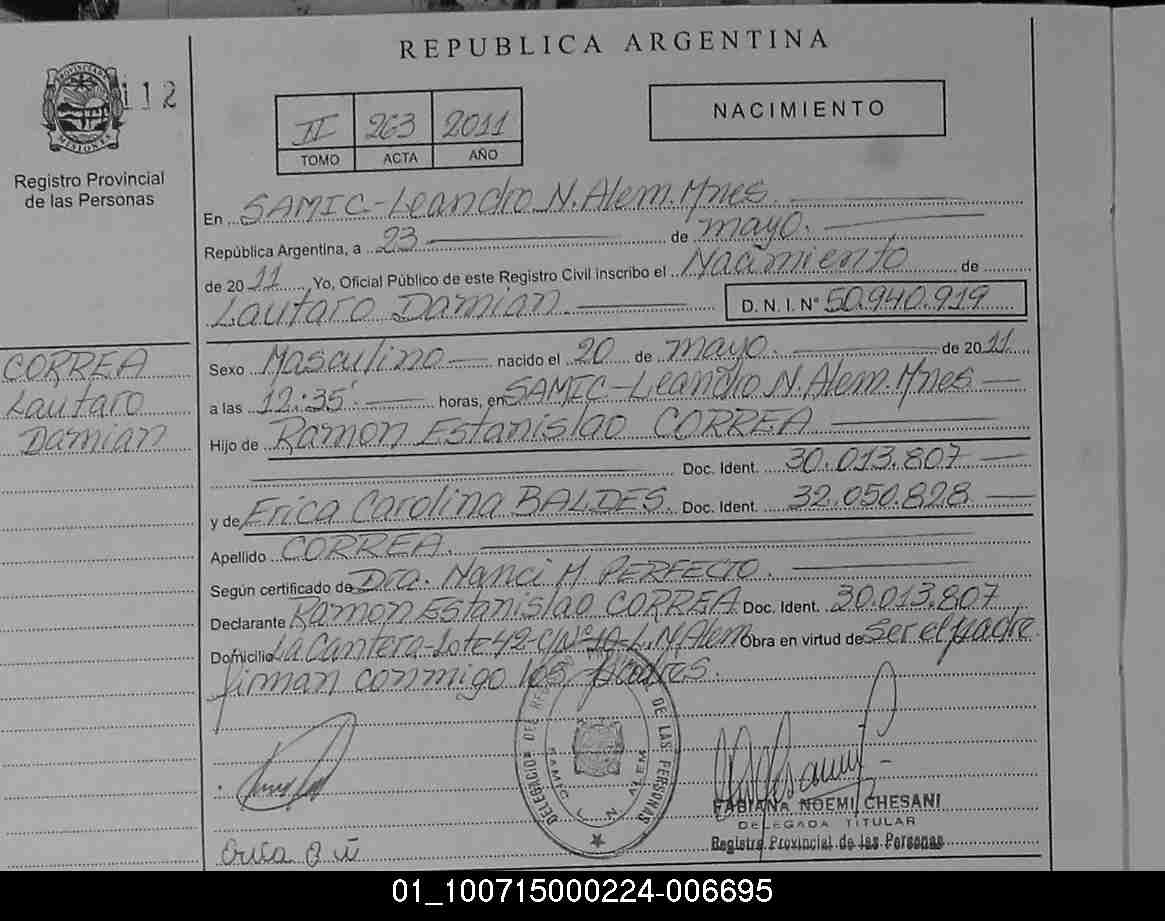 REPUBLICA ARGENTINA
PROVINCIA DE MISIONES
112
Registro Provincial
de las Personas
II 263 2011
TOMO ACTA AÑO
NACIMIENTO
En SAMIC-Leandro N. Alem. Mnes
República Argentina, a 23 de mayo.
de 2011 Yo, Oficial Público de este Registro Civil inscribo el Nacimiento de
Lautaro Damian D. N. I. N° 50.940.919
CORREA
Lautaro
Damian
Sexo Masculino nacido el 20 de mayo. de 2011
a las 12:35' horas, en SAMIC-Leandro N. Alem. Mnes
Hijo de Ramon Estanislao CORREA
Doc. Ident. 30.013.807
y de Erica Carolina BALDES. Doc. Ident. 32.050.828
Apellido CORREA.
Según certificado de Dra. Nanci M PERFECTO.
Declarante Ramon Estanislao CORREA Doc. Ident. 30.013.807
Domicilio La Cantera-Lote 42-C/N° 10-L.N.Alem Obra en virtud de Ser el padre.
firman conmigo los Padres.
DELEGACION DEL REGISTRO PROVINCIAL DE LAS PERSONAS
SAMIC L. N. ALEM
FABIANA NOEMI CHESANI
DELEGADA TITULAR
Registro Provincial de las Personas
Erica
01_100715000224-006695